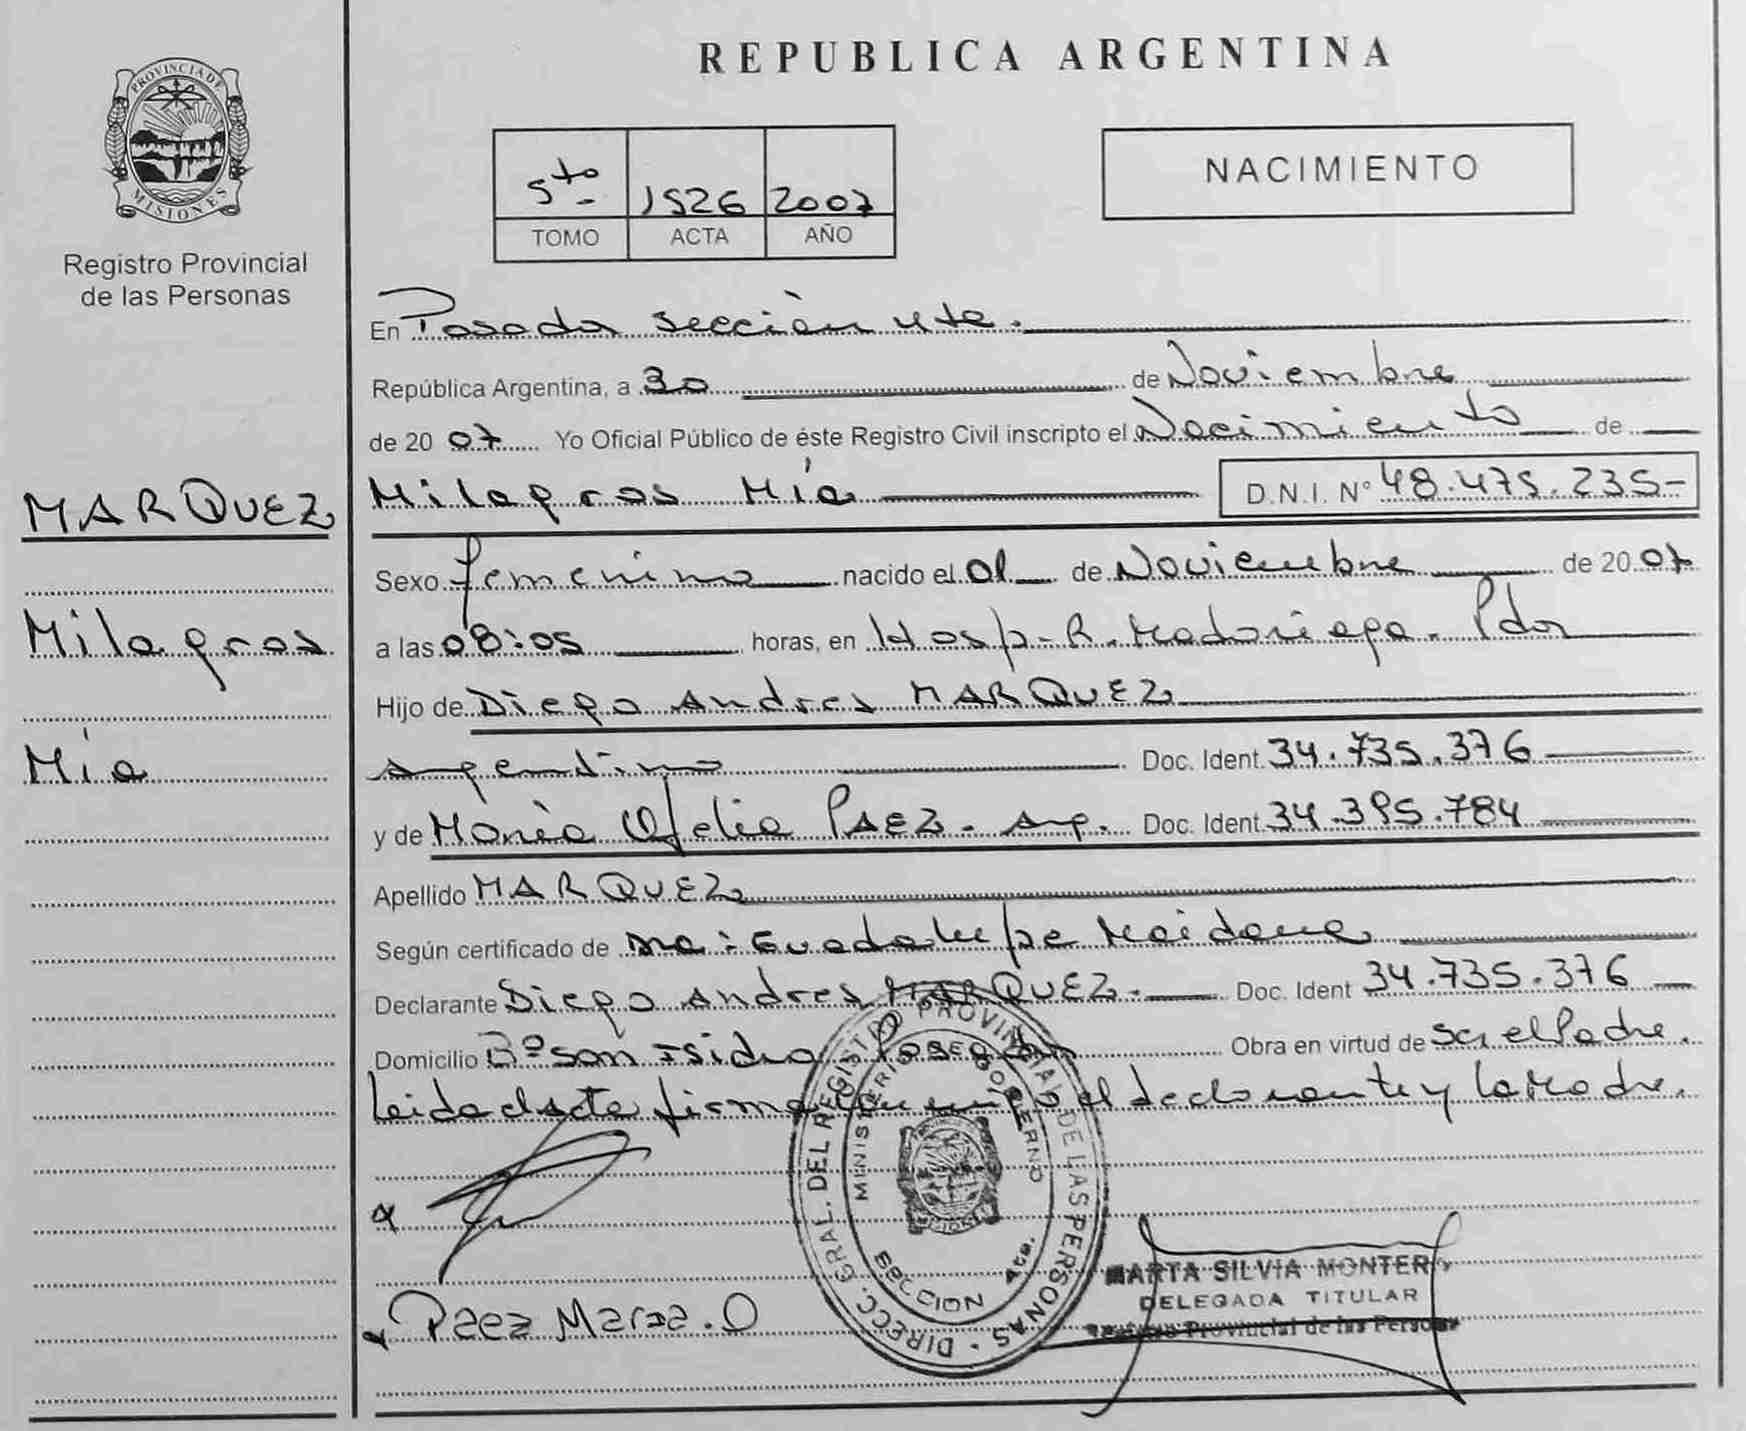 PROVINCIA DE
MISIONES
Registro Provincial
de las Personas
MARQUEZ
Milagros
Mía
REPUBLICA ARGENTINA
5to 1526 2007
TOMO ACTA AÑO
NACIMIENTO
En Posadas sección 4ta.
República Argentina, a 30 de Noviembre
de 20 07 Yo Oficial Público de éste Registro Civil inscripto el Nacimiento de
Milagros Mía D.N.I. Nº 48.475.235-
Sexo femenino nacido el 01 de Noviembre de 20 07
a las 08:05 horas, en Hosp-R. Madariaga. Pdas
Hijo de Diego Andres MARQUEZ
argentino Doc. Ident. 34.735.376
y de María Ofelia PAEZ. arg. Doc. Ident. 34.395.784
Apellido MARQUEZ
Según certificado de Guadalupe Maidana
Declarante Diego Andres MARQUEZ. Doc. Ident 34.735.376
Domicilio Bº San Isidro Posadas Obra en virtud de ser el Padre.
Leida el acta firma conmigo el declarante y la Madre.
DIRECC. GRAL. DEL REGISTRO PROVINCIAL DE LAS PERSONAS
MINISTERIO DE GOBIERNO
SECCION 4ta.
Paez Maria. O
MARTA SILVIA MONTERO
DELEGADA TITULAR
Registro Provincial de las Personas